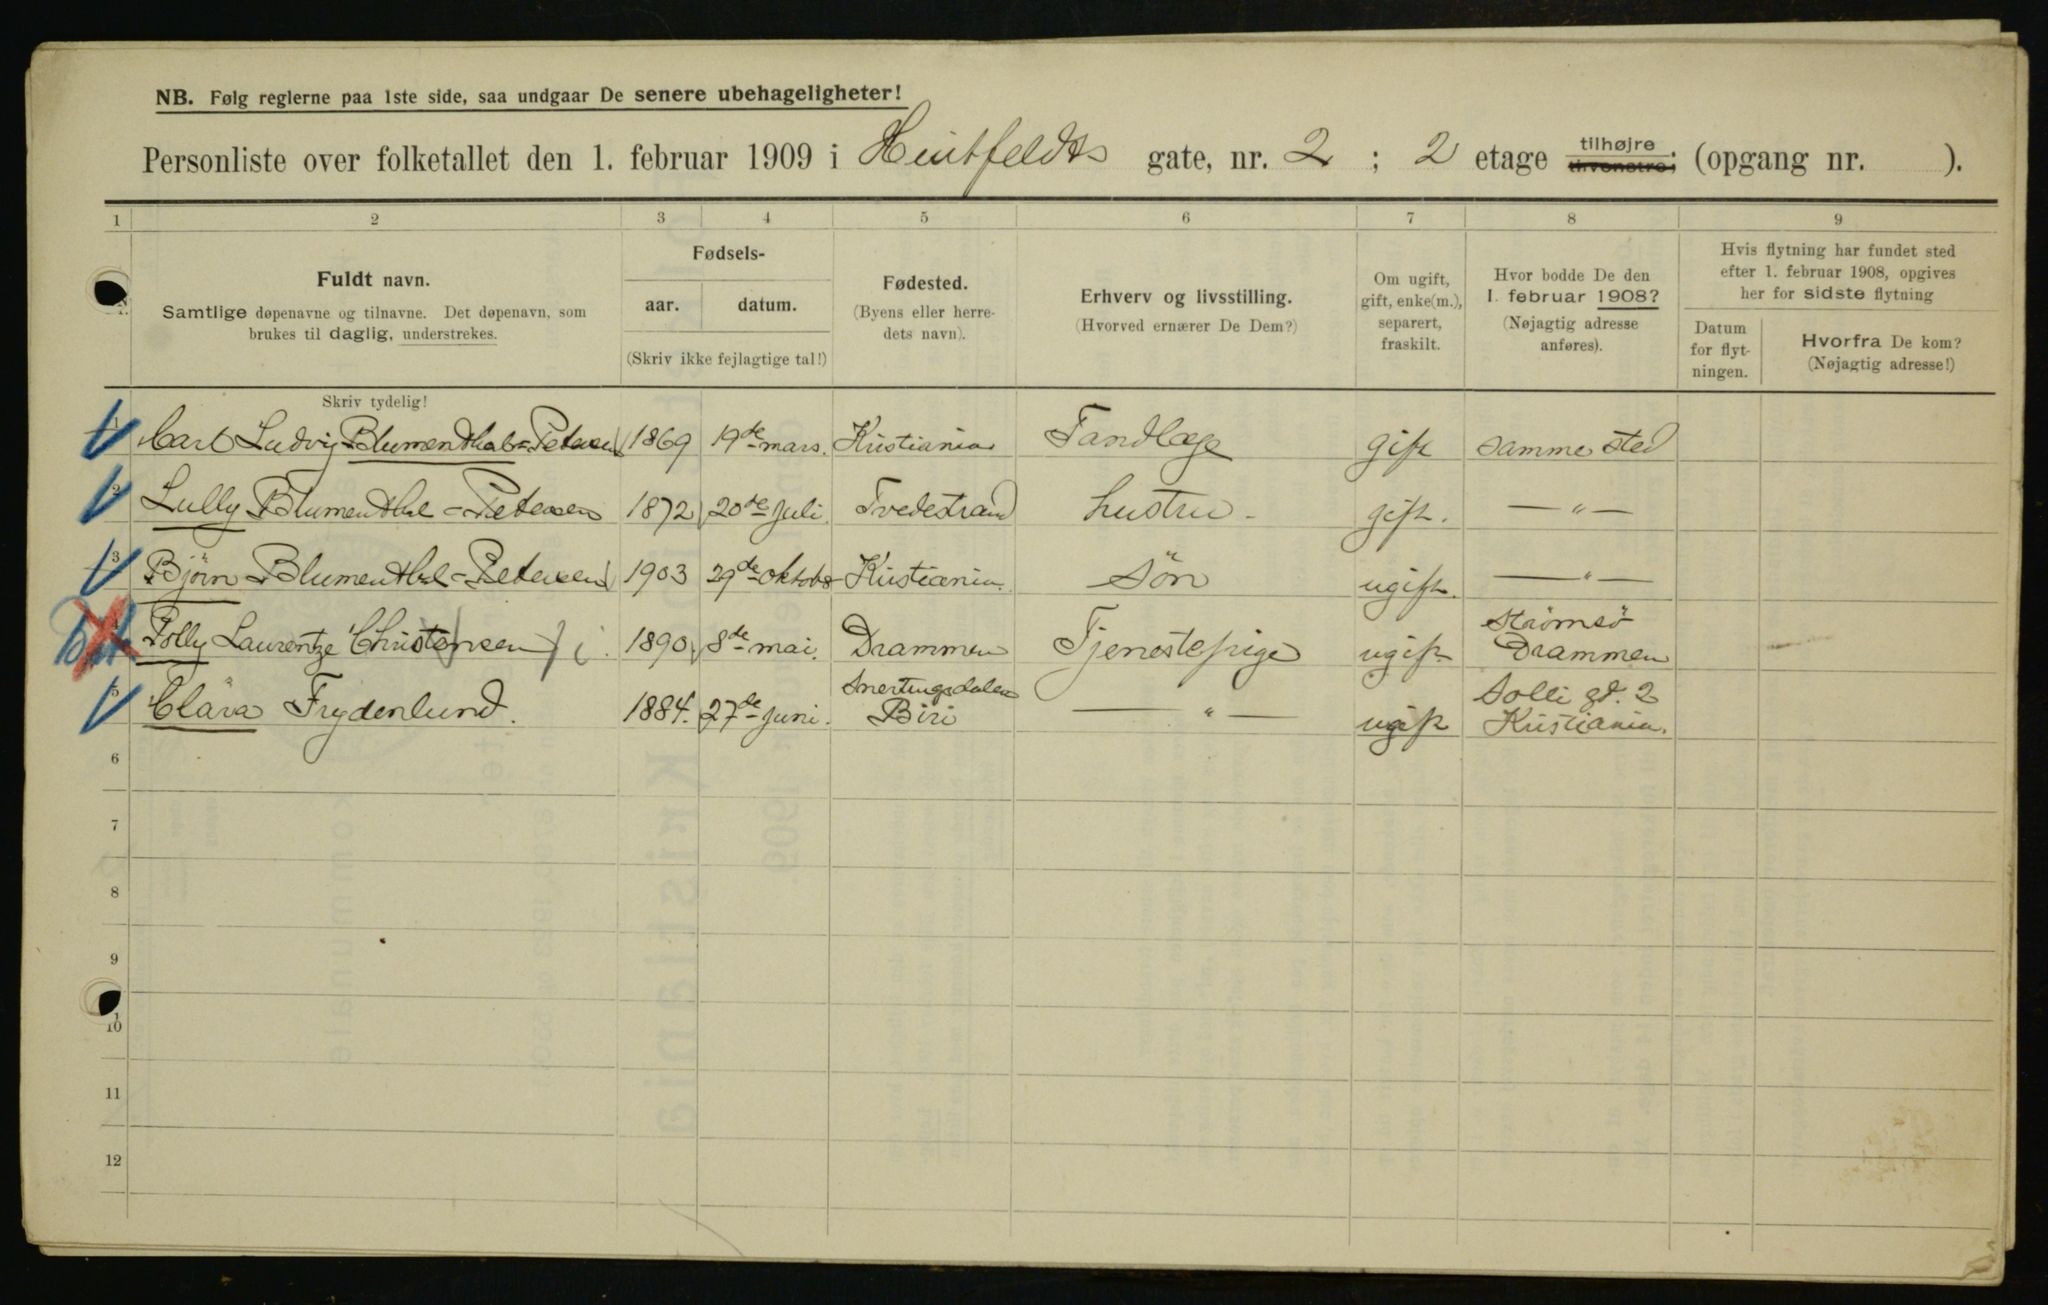 NB. Følg reglerne paa 1ste side, saa undgaar De senere ubehageligheter!
Personliste over folketallet den 1. februar 1909 i Huitfeldts gate, nr. 2 ; 2 etage tilhøjre tilvenstre; (opgang nr. ).
1 2 3 4 5 6 7 8 9
Fuldt navn.
Samtlige døpenavne og tilnavne. Det døpenavn, som
brukes til daglig, understrekes.
Fødsels-
aar. datum.
(Skriv ikke fejlagtige tal!)
Fødested.
(Byens eller herre-
dets navn).
Erhverv og livsstilling.
(Hvorved ernærer De Dem?)
Om ugift,
gift, enke(m.),
separert,
fraskilt.
Hvor bodde De den
1. februar 1908?
(Nøjagtig adresse
anføres).
Hvis flytning har fundet sted
efter 1. februar 1908, opgives
her for sidste flytning
Datum
for flyt-
ningen.
Hvorfra De kom?
(Nøjagtig adresse!)
Skriv tydelig!
1 Carl Ludvig Blumenthal-Petersen 1869 19de mars. Kristiania Tandlæge gift samme sted
2 Lully Blumenthal-Petersen 1872 20de juli. Tvedestrand hustru - gift. — " —
3 Björn Blumenthal-Petersen 1903 29de oktobr Kristiania. Sön ugift. — " —
Polly Laurentze Christensen 1890 8de mai. Drammen Tjenestepige ugift Strömsö Drammen
5 Clära Frydenlund. 1884. 27de juni. Snertingsdalen Biri — " — ugift Solli gd. 2 Kristiania.
6
7
8
9
10
11
12